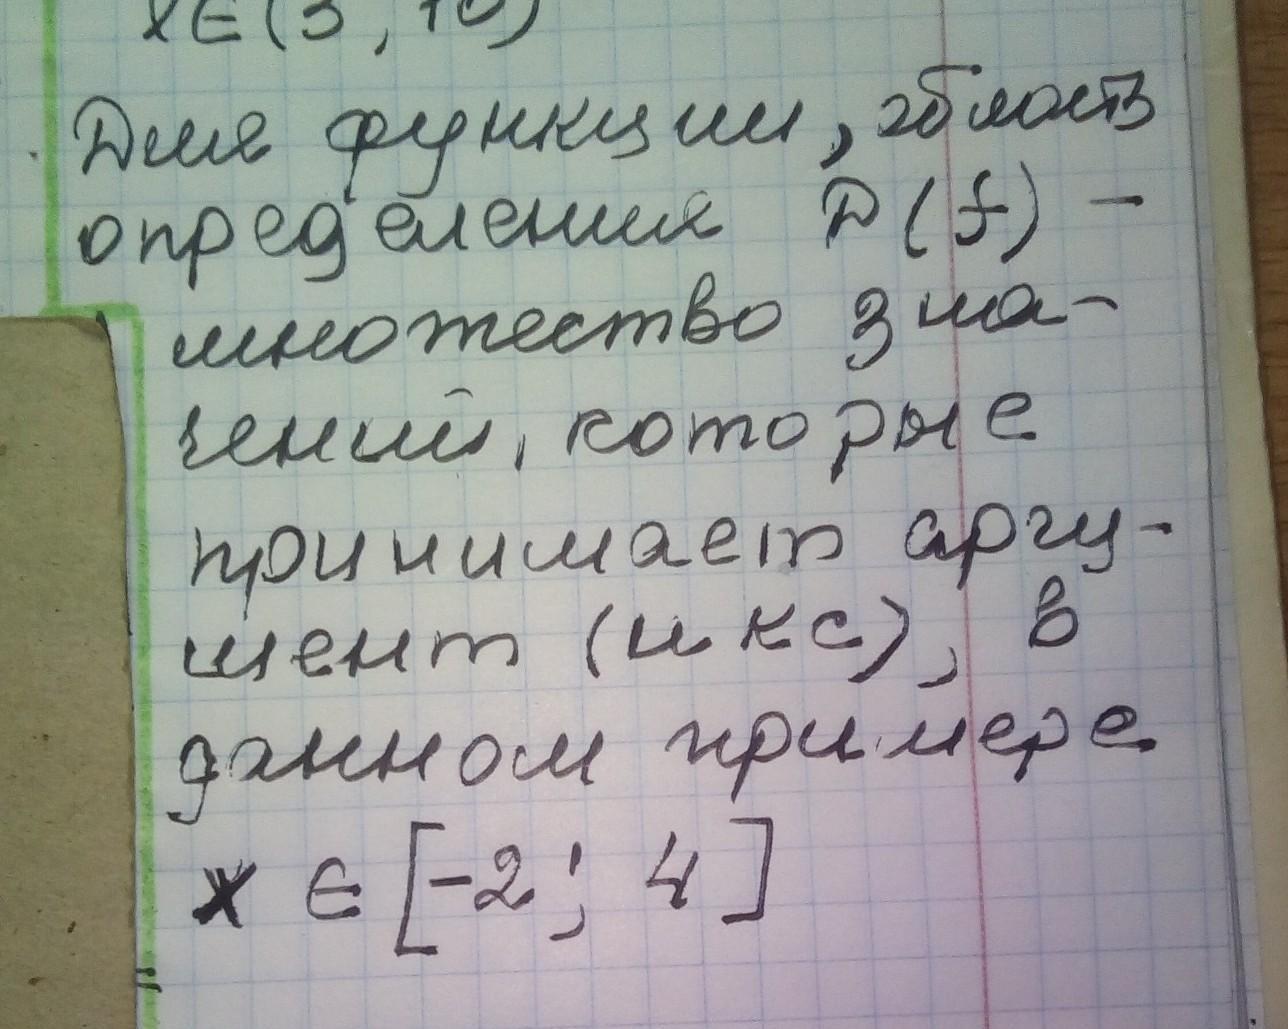 x∈(3, 10)
Для функции, область
определения D(f) -
множество зна-
чений, которые
принимает аргу-
мент (икс), в
данном примере
x ∈ [-2; 4]